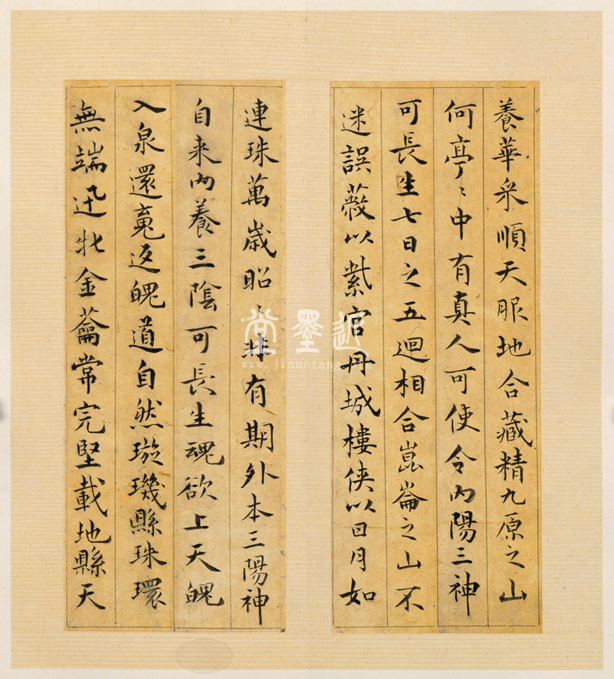 養華采順天服地合藏精九原之山
何亭〻中有真人可使令內陽三神
可長生七日之五迴相合崑崙之山不
迷誤蔽以紫宮丹城樓俠以日月如
連珠萬歲昭〻非有期外本三陽神
自来內養三陰可長生魂欲上天魄
入泉還魂返魄道自然璇璣縣珠環
無端迅牝金籥常完堅載地縣天
金墨堂
www.jinmotang